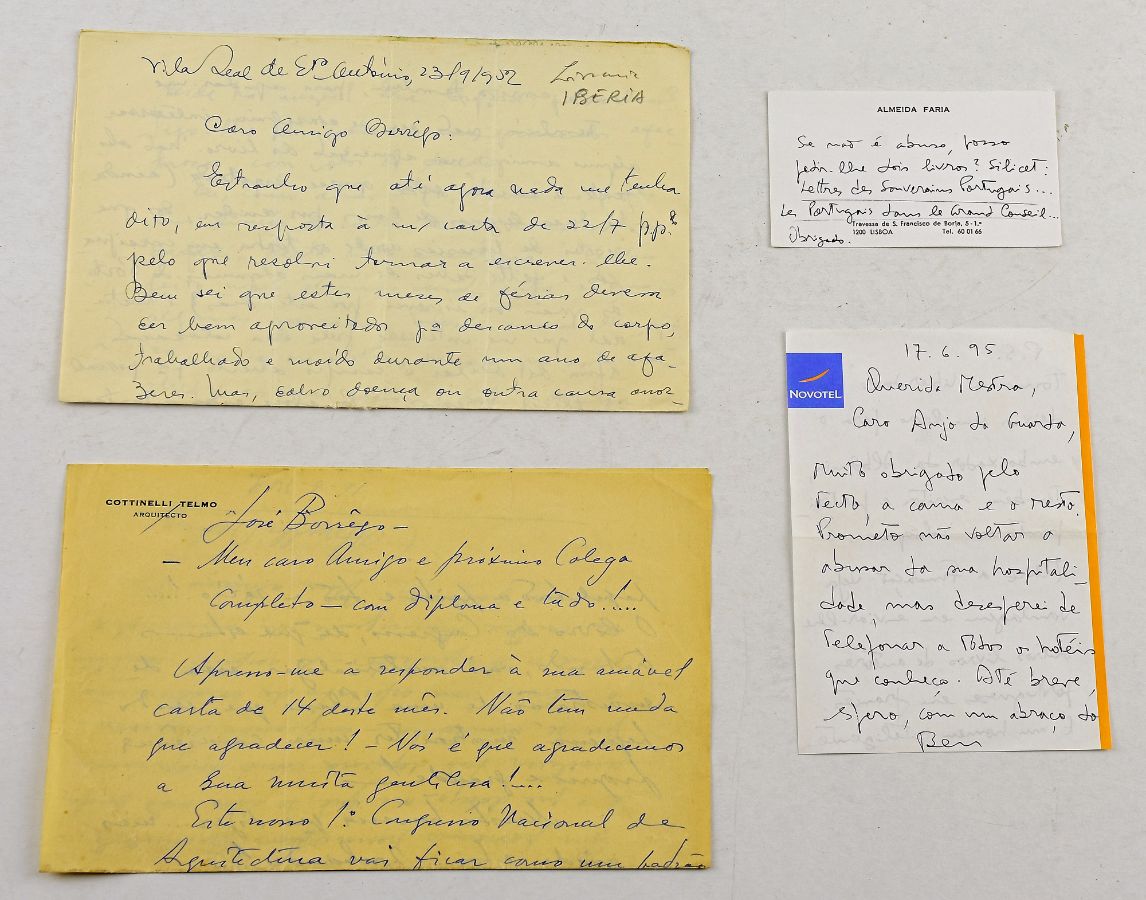 Vila Real de Stº António, 23/9/952
Livraria
IBERIA
Caro Amigo Borrêgo:
Estranho que até agora nada me tenha
dito, em resposta à m/ carta de 22/7 pp.º
pelo que resolvi tornar a escrever-lhe.
Bem sei que estes meses de férias devem
ser bem aproveitados pª descanso do corpo,
trabalhado e moído durante um ano de afa-
zeres. Mas, salvo doença ou outra causa anor-
ALMEIDA FARIA
Se não é abuso, posso
pedir-lhe dois livros? Silicet:
Lettres des Souverains Portugais...
Les Portugais dans le Grand Conseil...
Travessa de S. Francisco de Borja, 5-1.º
1200 LISBOA Tel. 60 01 66
Obrigado.
COTTINELLI TELMO
ARQUITECTO
José Borrêgo —
— Meu caro Amigo e próximo Colega
completo — com diploma e tudo!....
Apresso-me a responder à sua amável
carta de 14 deste mês. Não tem nada
que agradecer! — Nós é que agradecemos
a sua muita gentilesa!....
Este nosso 1.º Congresso Nacional de
Arquitectura vai ficar como um padrão
NOVOTEL
17.6.95
Querida Mestra,
Caro Anjo da Guarda,
Muito obrigado pelo
tecto, a cama e o resto.
Prometo não voltar a
abusar da sua hospitali-
dade, mas desesperei de
telefonar a todos os hotéis
que conheço. Até breve,
espero, com um abraço do
Ben